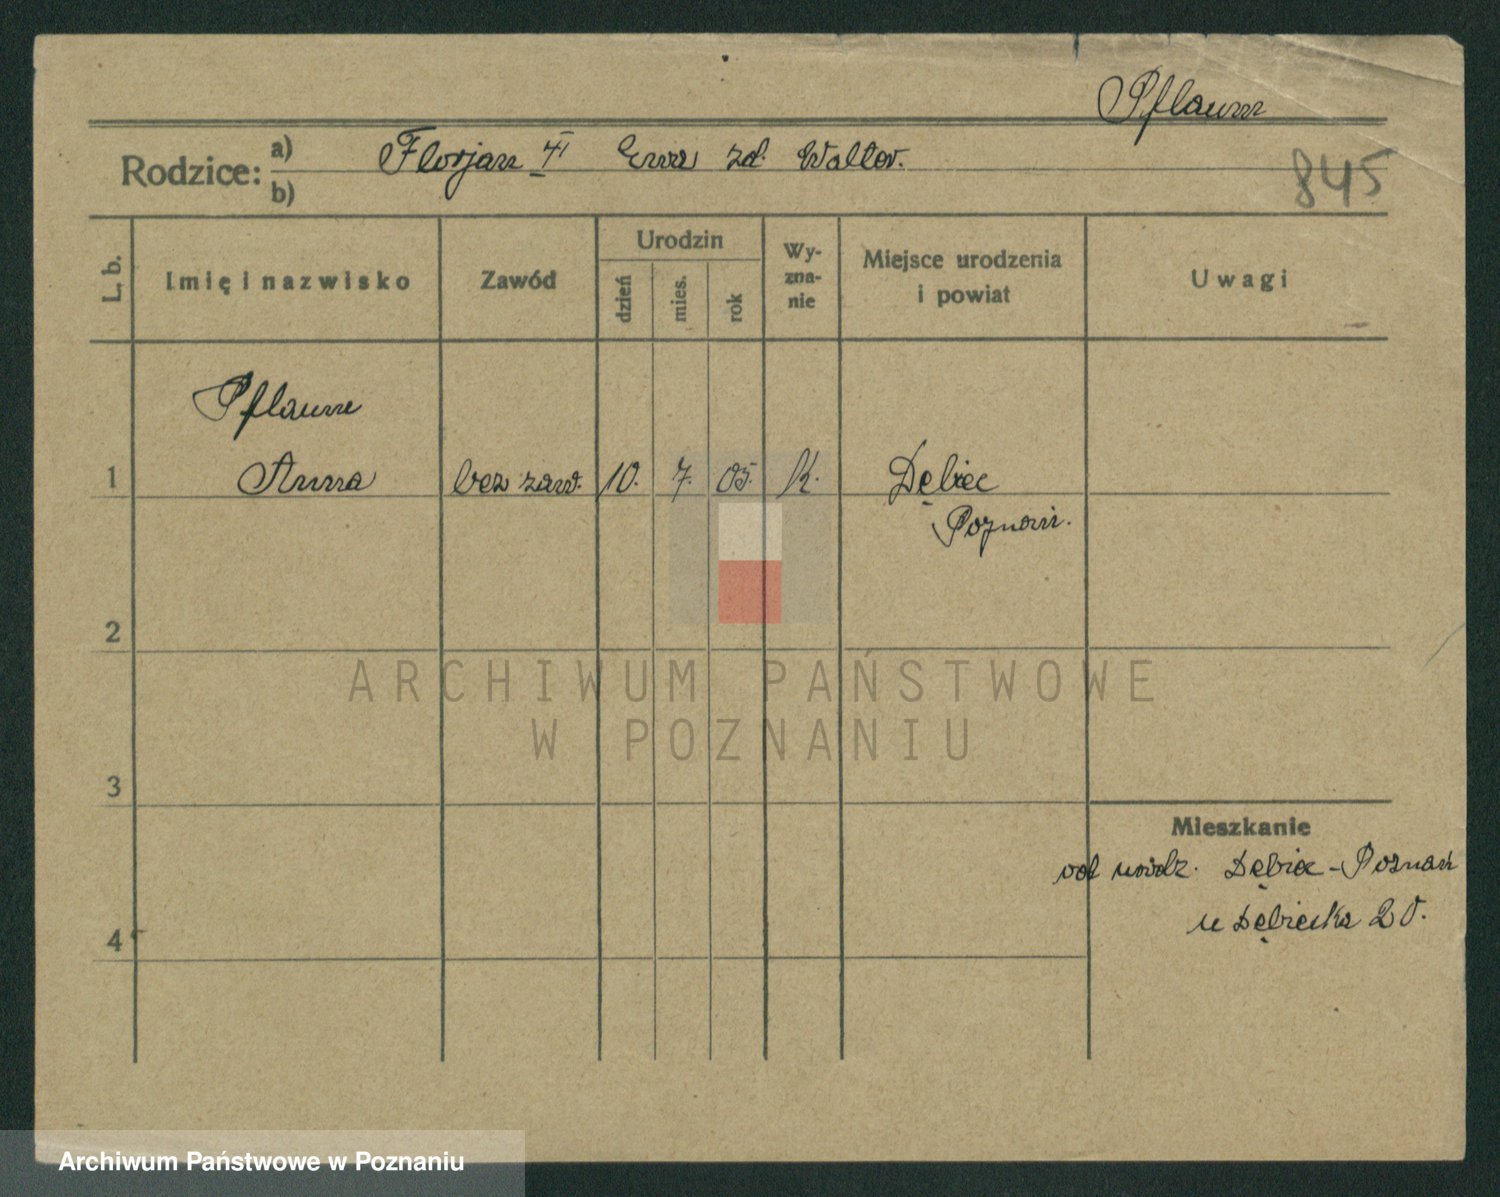 Pflaum
Rodzice: a) Florjan VI Ewa zd. Walter.
b)
845
L. b.
Imię i nazwisko
Zawód
Urodzin
dzień
mies.
rok
Wy-
zna-
nie
Miejsce urodzenia
i powiat
Uwagi
Pflaum
1 Anna bez zaw. 10. 7. 05. K. Dębiec
Poznań.
2
3
4
Mieszkanie
od urodz. Dębiec-Poznań
u Dębiecka 20.
ARCHIWUM PAŃSTWOWE
W POZNANIU
Archiwum Państwowe w Poznaniu